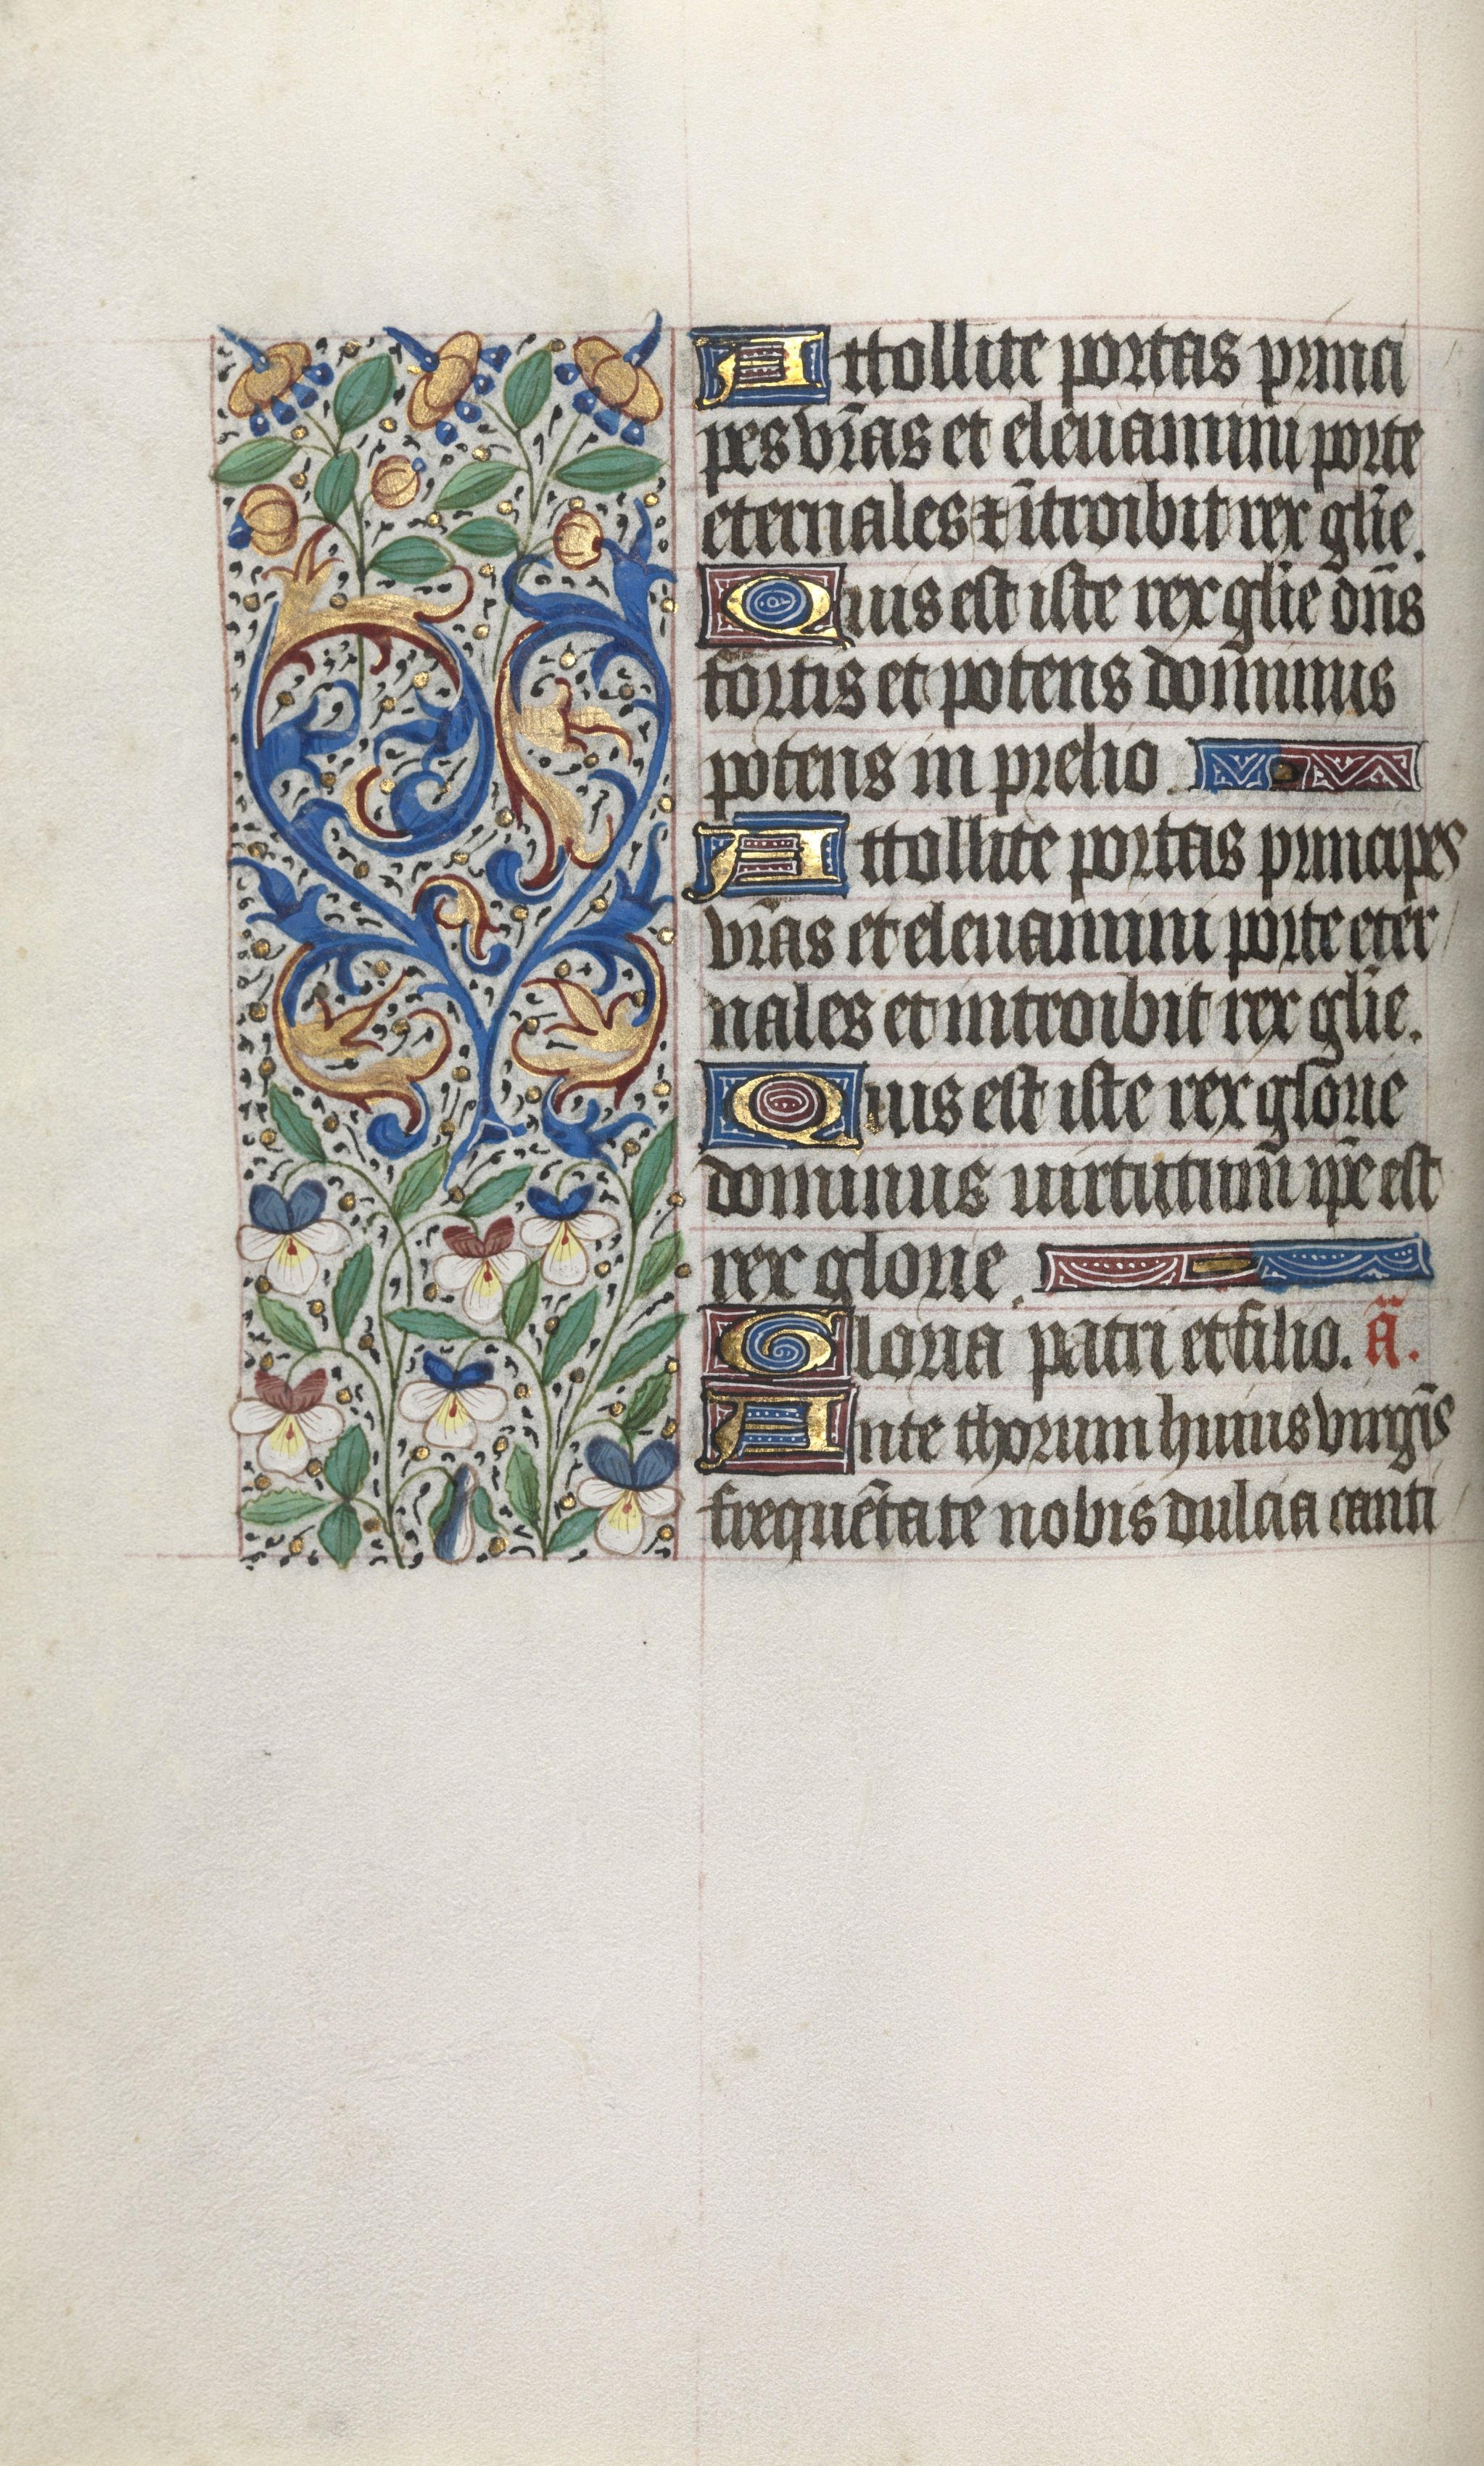 Attollite portas princi
pes vr̃as et eleuamini porte
eternales ⁊ ĩtroibit rex gl̃ie.
Quis est iste rex gl̃ie dñs
fortis et potens dominus
potens in prelio.
Attollite portas principes
vr̃as et eleuamini porte eter
nales et introibit rex gl̃ie.
Quis est iste rex glorie
dominus uirtutum̃ ip̃e est
rex glorie.
Gloria patri et filio. ã.
Ante thorum huius virgĩs
frequẽtate nobis dulcia canti